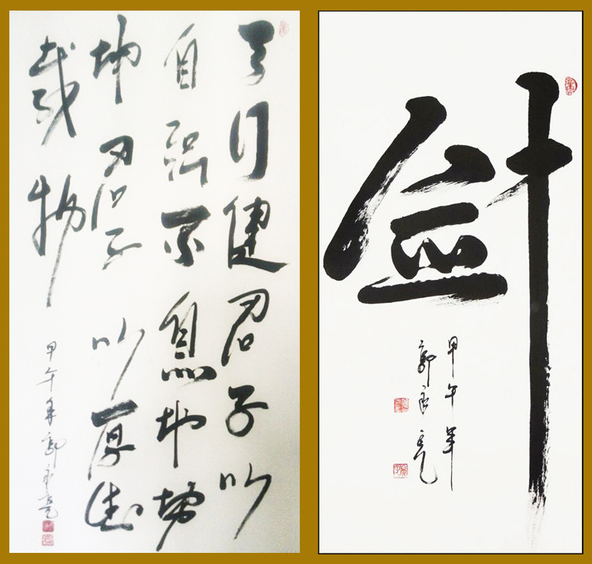 天行健君子以
自强不息地势
坤君子以厚德
载物
甲午年郭亮
剑
甲午年
郭亮